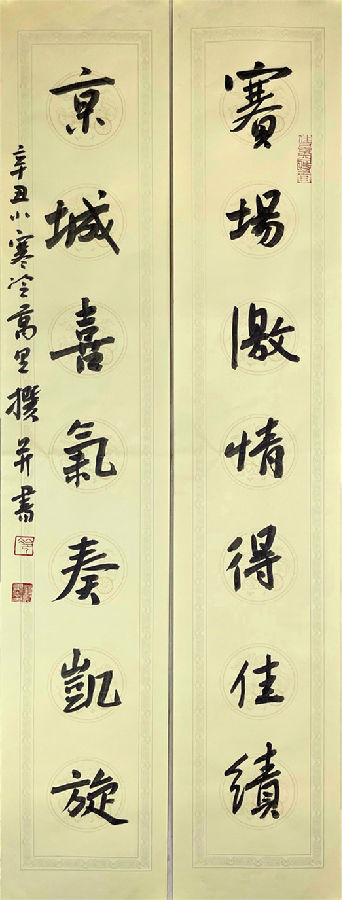 賽場激情得佳績
京城喜氣奏凱旋
辛丑小寒冷萬里撰并書